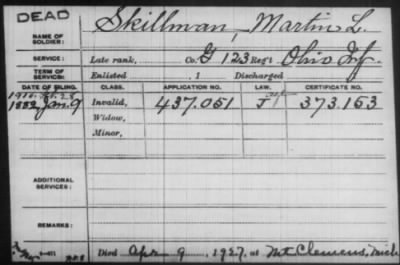 DEAD
NAME OF SOLDIER: Skillman, Martin L.
SERVICE: Late rank, Co. G 123 Regt Ohio Inf.
TERM OF SERVICE: Enlisted , 1 Discharged
DATE OF FILING. CLASS. APPLICATION NO. LAW. CERTIFICATE NO.
1882 Jan. 9 Invalid, 437.051 373.163
Widow,
Minor,
ADDITIONAL SERVICES:
REMARKS:
Died Apr 9, 1927, at Mt Clemens, Mich